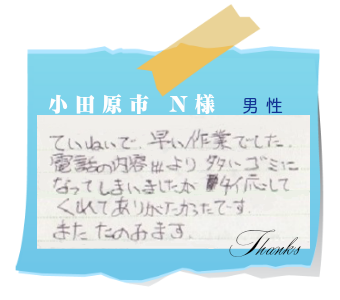 小田原市 N様 男性
ていねいで、早い作業でした。
電話の内容出より 多いゴミに
なってしまいましたが 対応して
くれてありがたかったです。
また たのみます。
Thanks